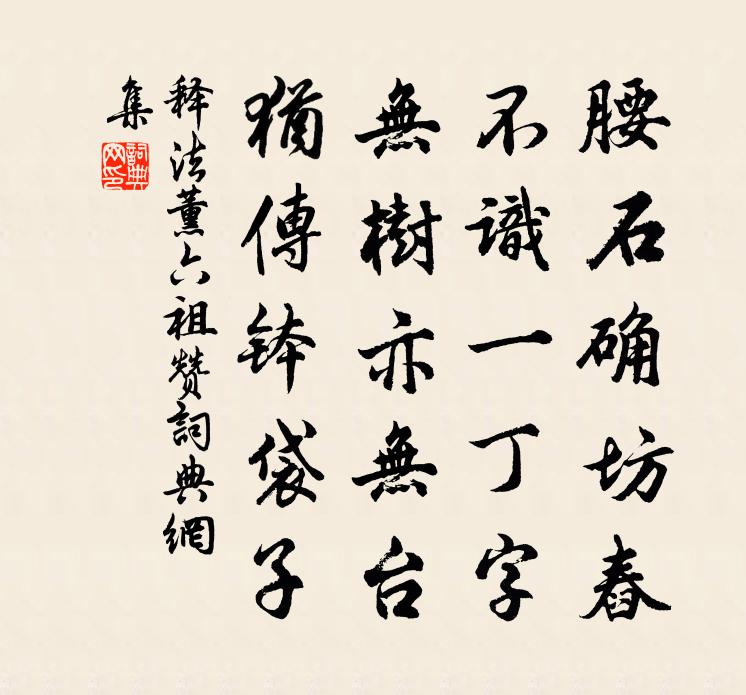 腰石确坊舂
不識一丁字
無樹亦無台
猶傳鉢袋子
释法薰六祖赞詞典網
集
詞典
网印